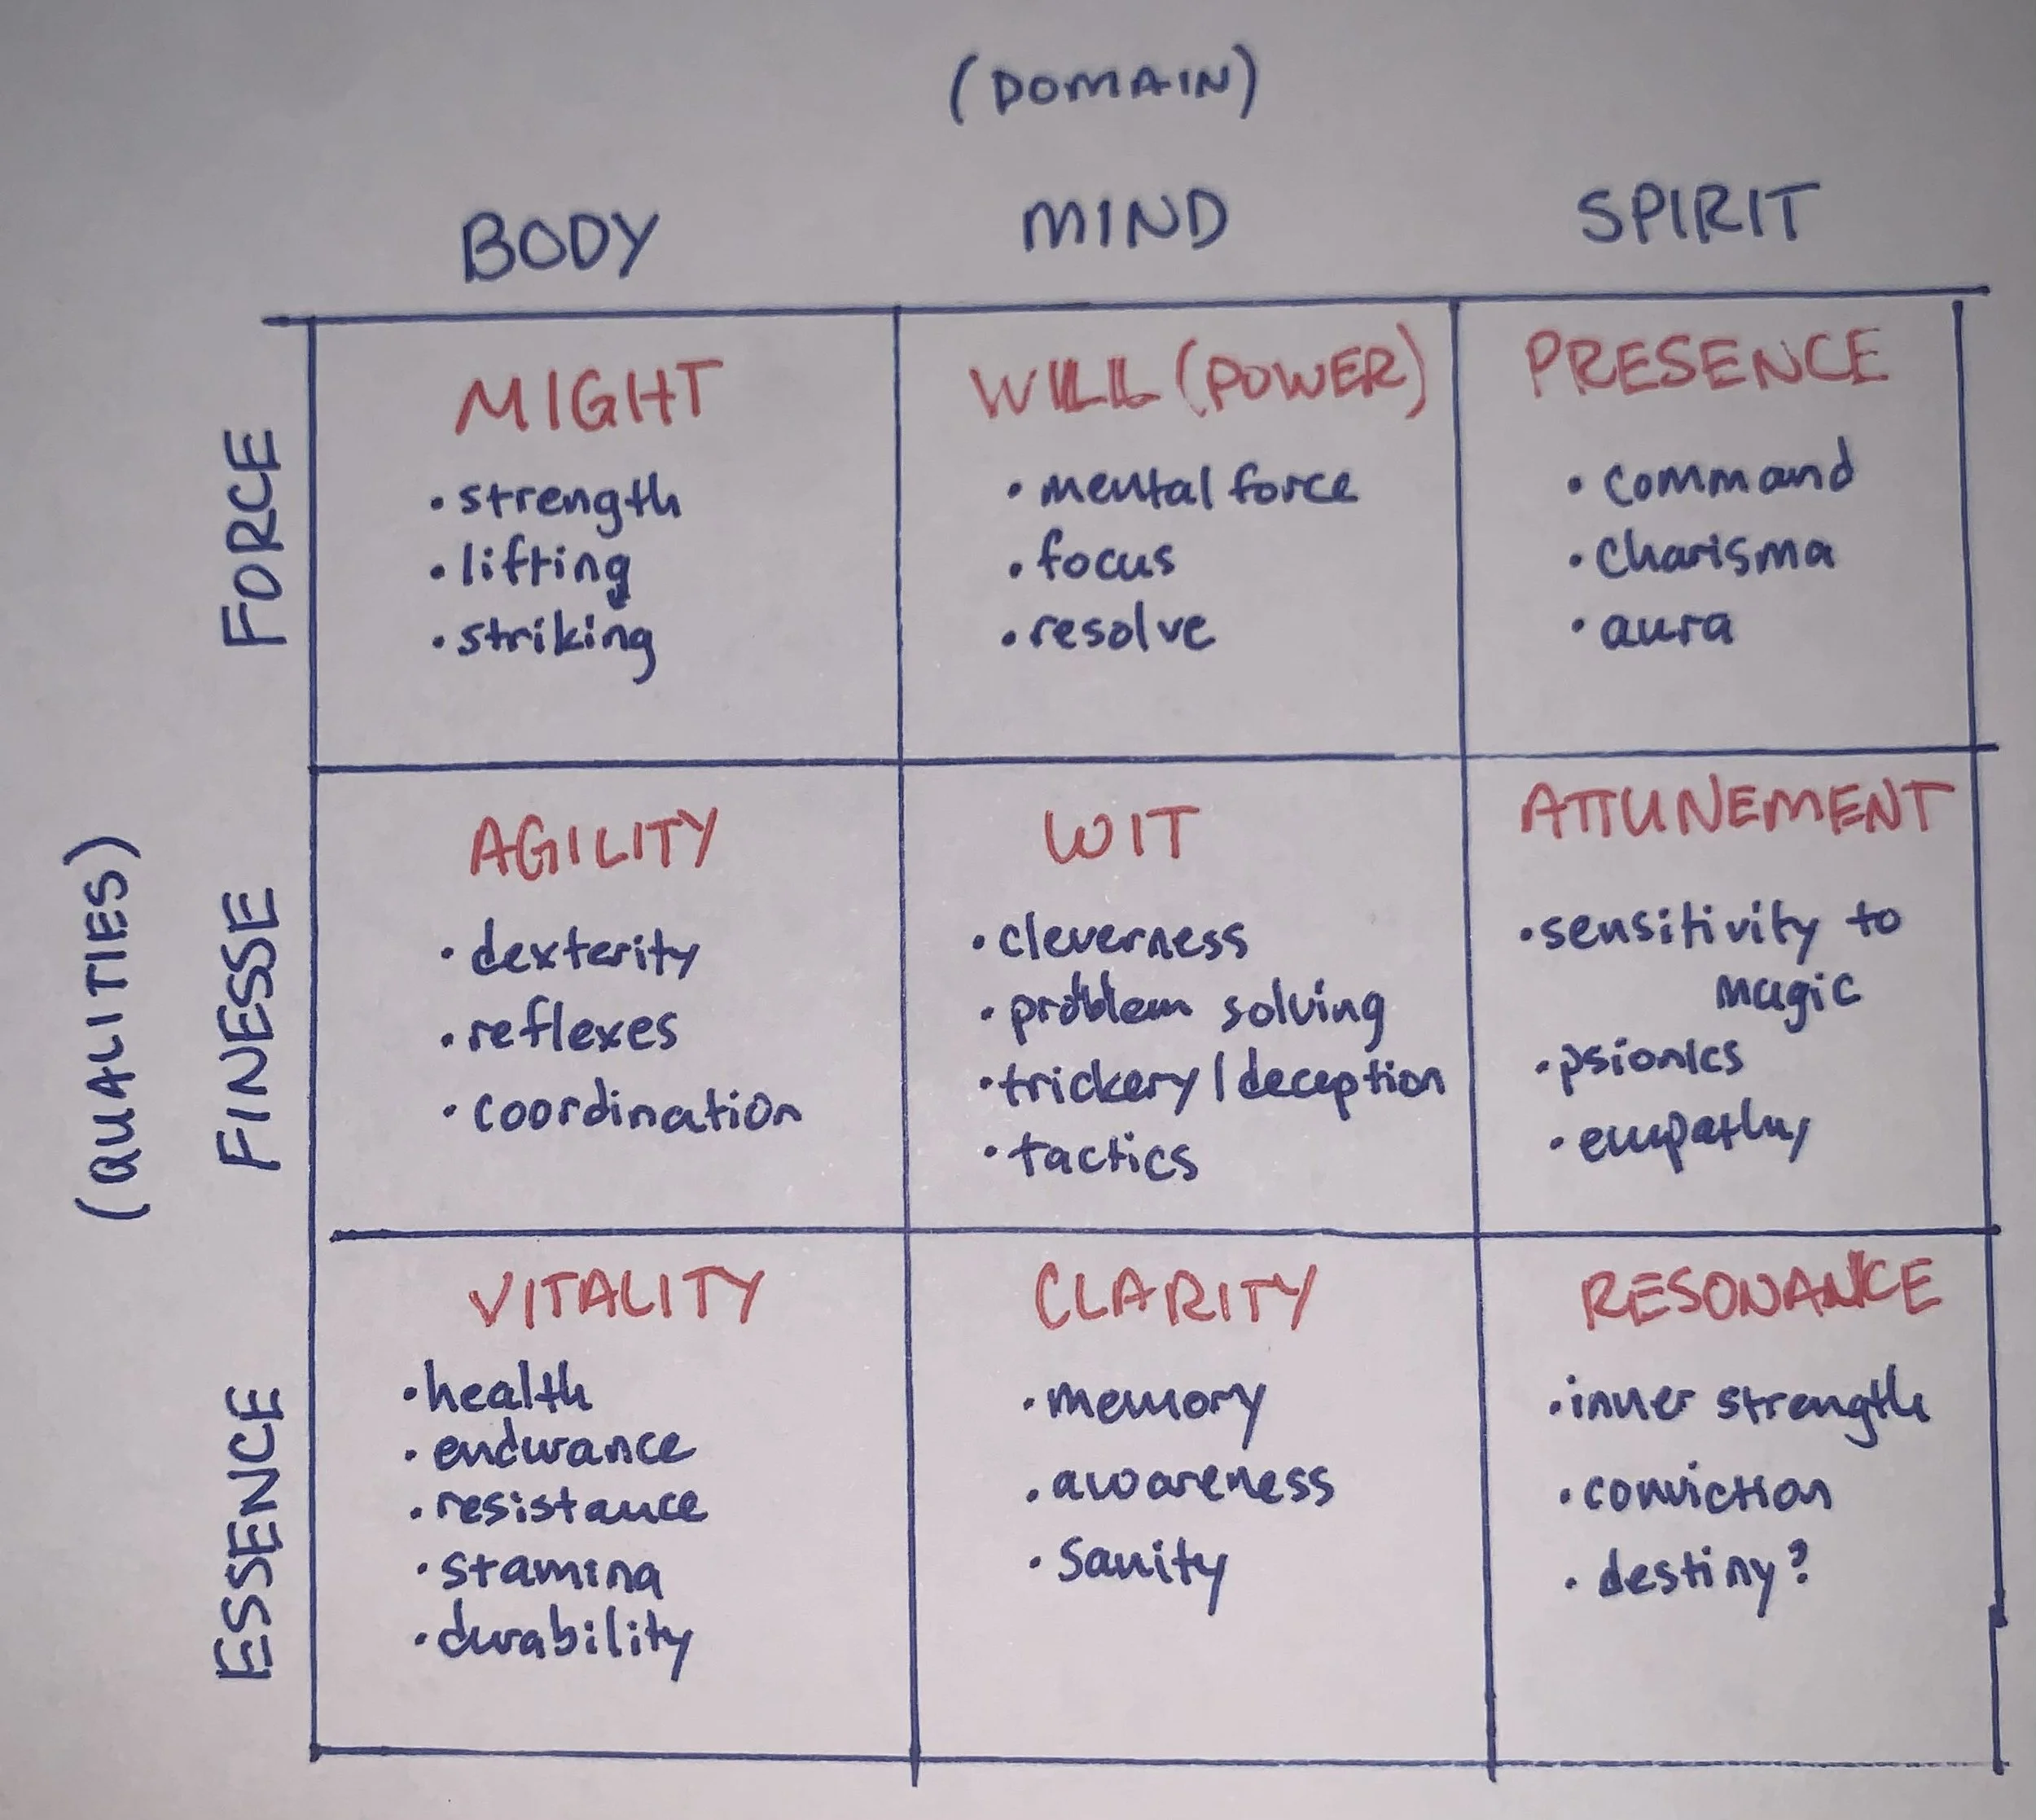 (DOMAIN)
BODY MIND SPIRIT
(QUALITIES)
FORCE
MIGHT
• strength
• lifting
• striking
WILL (POWER)
• mental force
• focus
• resolve
PRESENCE
• command
• charisma
• aura
FINESSE
AGILITY
• dexterity
• reflexes
• coordination
WIT
• cleverness
• problem solving
• trickery / deception
• tactics
ATTUNEMENT
• sensitivity to
magic
• psionics
• empathy
ESSENCE
VITALITY
• health
• endurance
• resistance
• stamina
• durability
CLARITY
• memory
• awareness
• Sanity
RESONANCE
• inner strength
• conviction
• destiny?